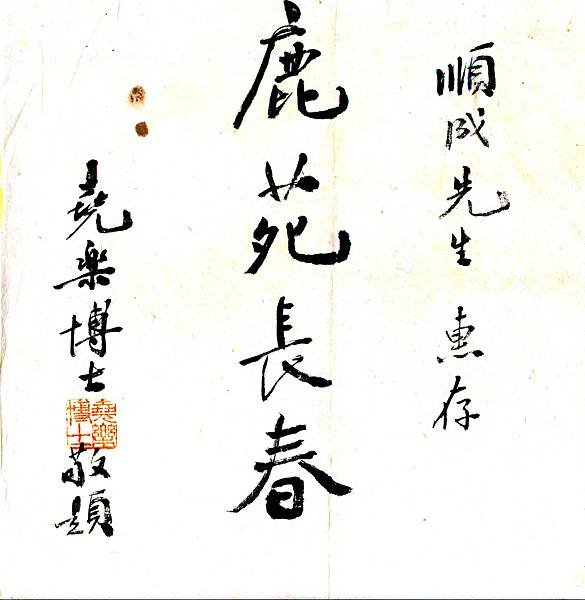 順成先生 惠存
鹿苑長春
堯樂博士敬題
堯樂
博士